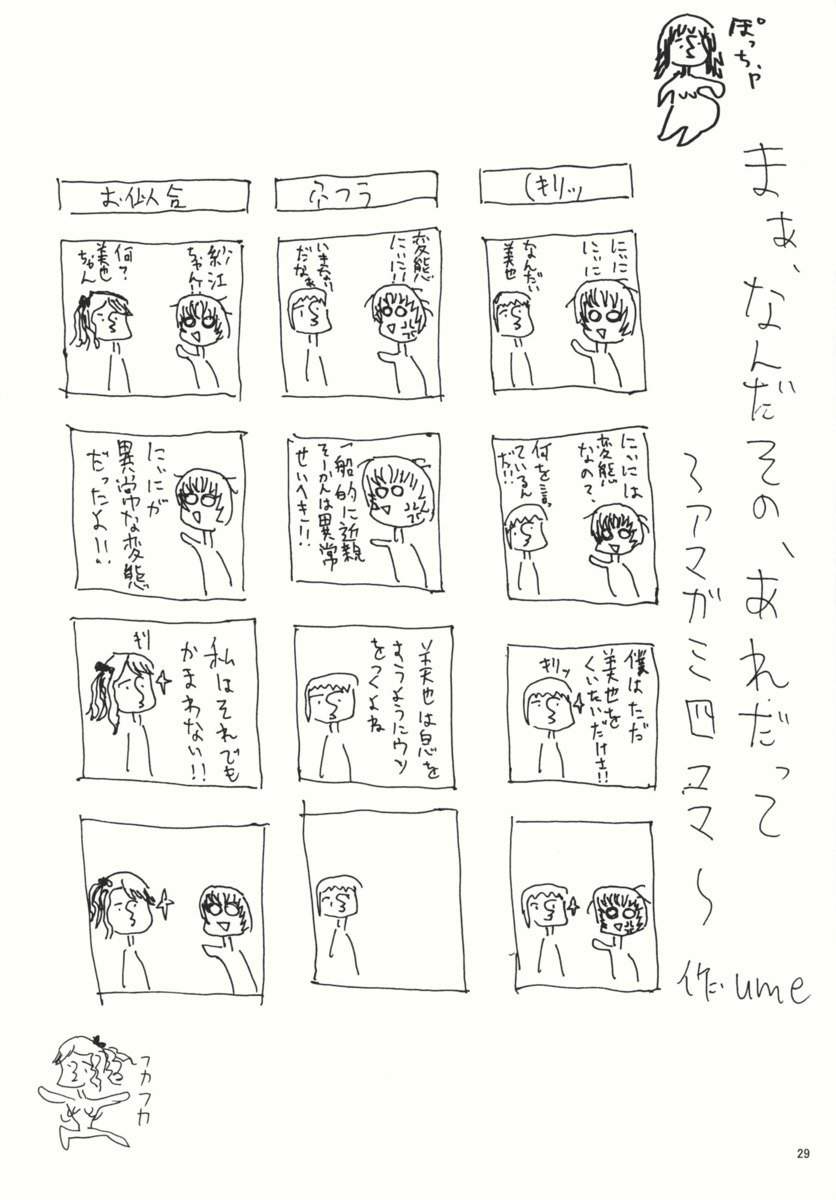 ぽっちゃ
まぁ、なんだその、あれだって
〜アマガミ四コマ〜
作:ume
(キリッ
にぃに
にぃに
なんだい
美也
にぃには
変態
なの?
何を言っ
ているん
だ!!
僕はただ
美也を
くいたいだけさ!!
キリッ
ふつう
変態
にぃに!!
いまさら
だなぁ
一船的に近親
そーかんは異常
せいへき!!
美也は息を
すうようにウソ
をつくよね
お似合
紗江
ちゃん!!
何?
美也
ちゃん
にぃにが
異常な変態
だったよ!!
私はそれでも
かまわない!!
キリ
フカフカ
29